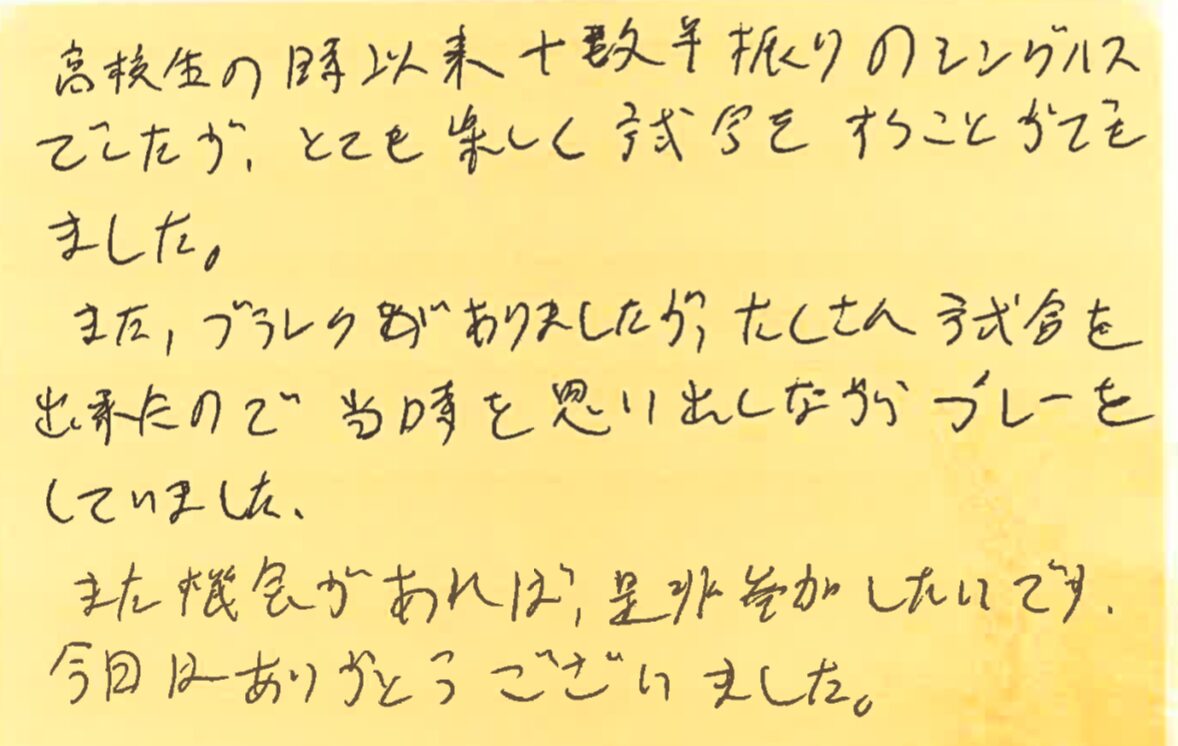 高校生の時以来十数年振りのシングルス
でしたが、とても楽しく試合をすることができ
ました。
また、ブランクがありましたが、たくさん試合を
出来たので当時を思い出しながらプレーを
していました。
また機会があれば、是非参加したいです。
今回はありがとうございました。